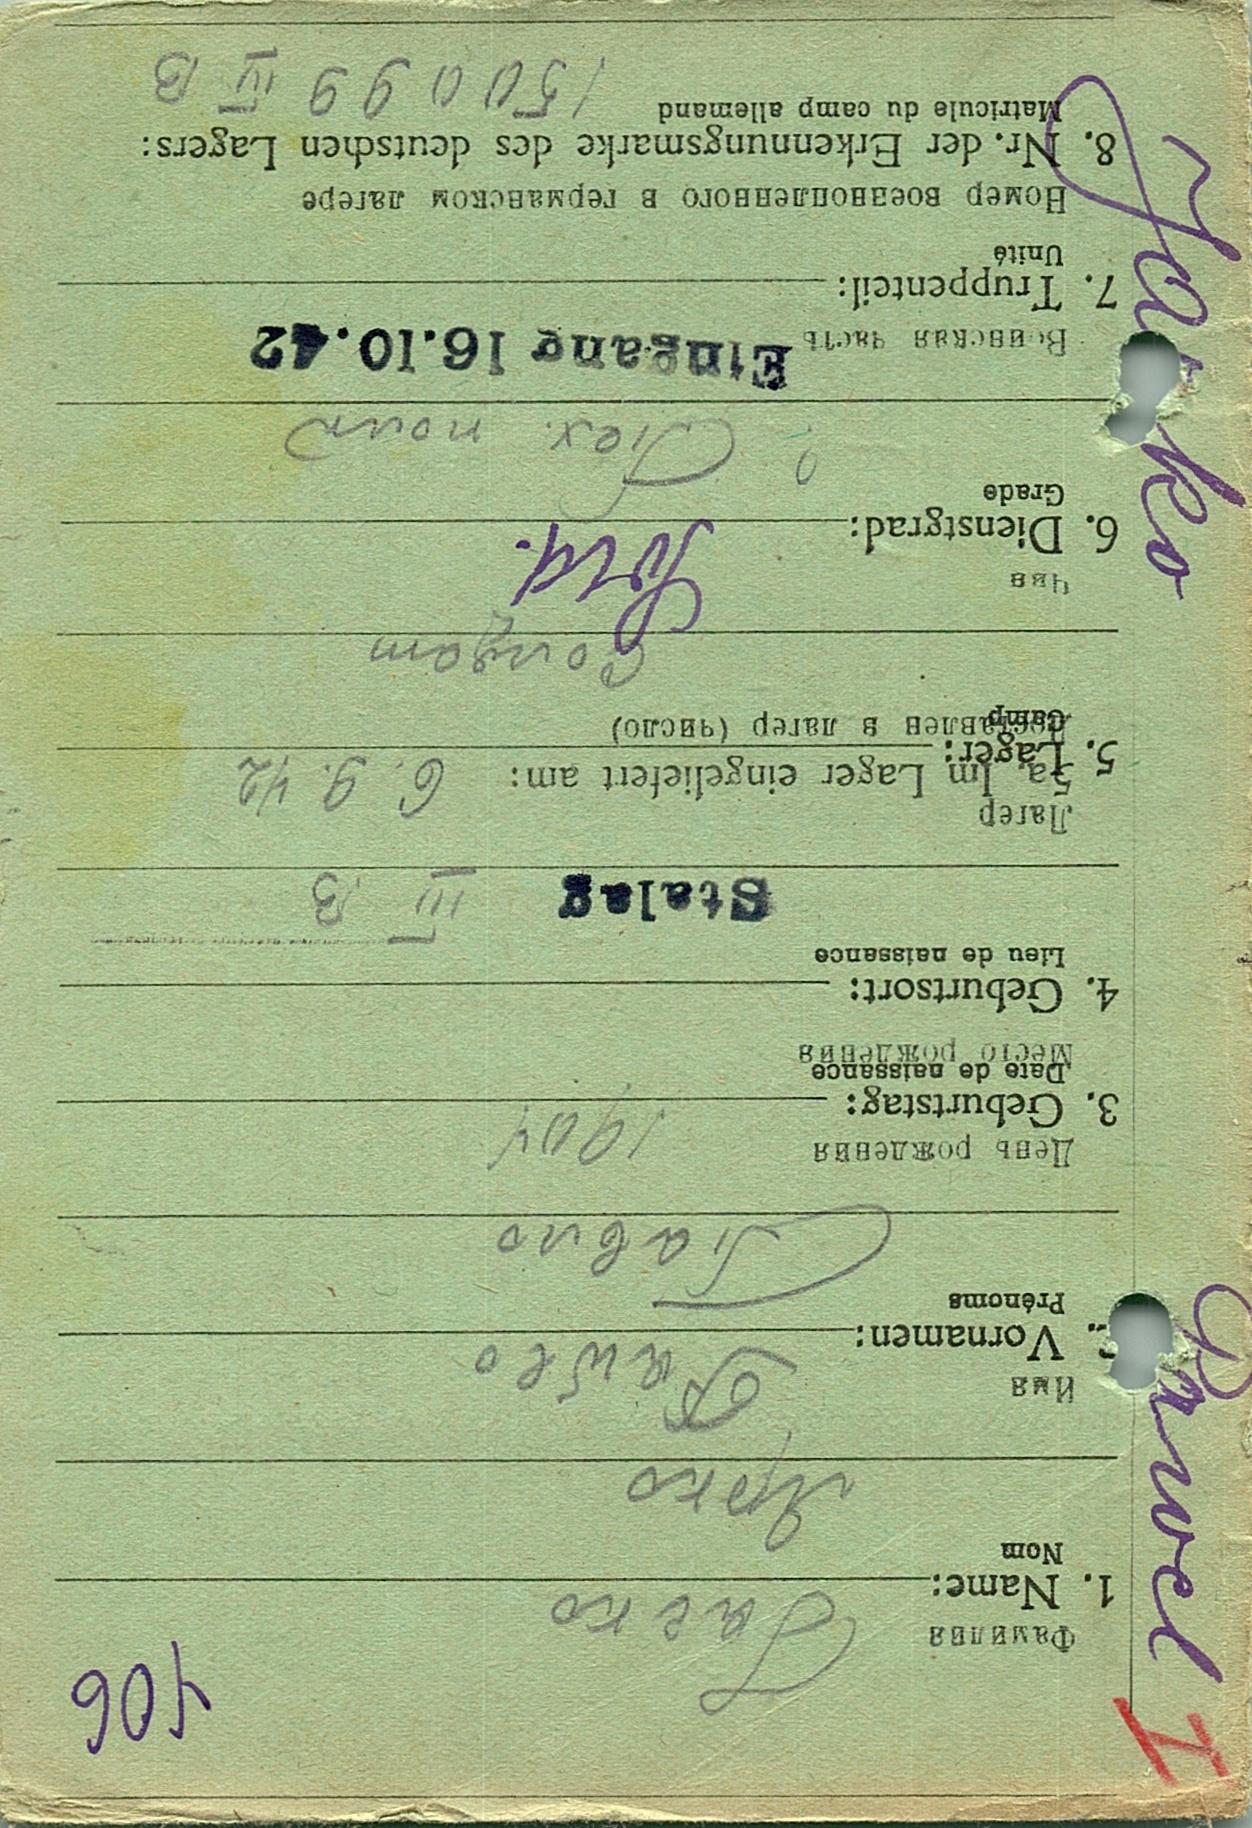 106
I
Фамилия
1. Name:
Nom
Jarko
Ярко
Имя
2. Vornamen:
Prénoms
Pawlo
Павло
День рождения
3. Geburtstag: 1904
Date de naissance
Место рождения
4. Geburtsort:
Lieu de naissance
Stalag III B
Лагер
5. Lager:
Camp
5a. Im Lager eingeliefert am: 6. 9. 42
Доставлен в лагер (число)
солдат
Чин
Sold.
6. Dienstgrad:
Grade
Воинская часть
Eingang 16.10.42
7. Truppenteil:
Unité
Номер военнопленного в германском лагере
8. Nr. der Erkennungsmarke des deutschen Lagers:
Matricule du camp allemand
150099 IV B
Jarko Pawel